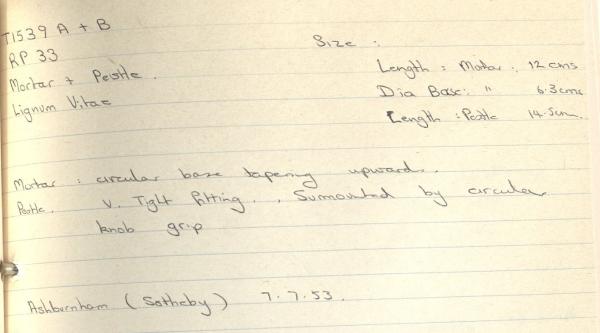 T1539 A + B
RP 33
Mortar + Pestle.
Lignum Vitae
Size :
Length : Mortar : 12 cms
Dia Base : " 6.3 cms
Length : Pestle 14.5 cm.
Mortar : circular base tapering upwards.
Pestle. v. Tight fitting. . Surmounted by circular
knob grip
Ashburnham (Sotheby) 7.7.53.